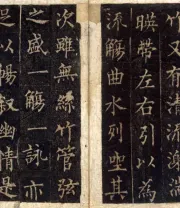 又有清流激湍
暎帶左右引以為
流觴曲水列坐其
次雖無絲竹管弦
之盛一觴一詠亦
足以暢敘幽情是